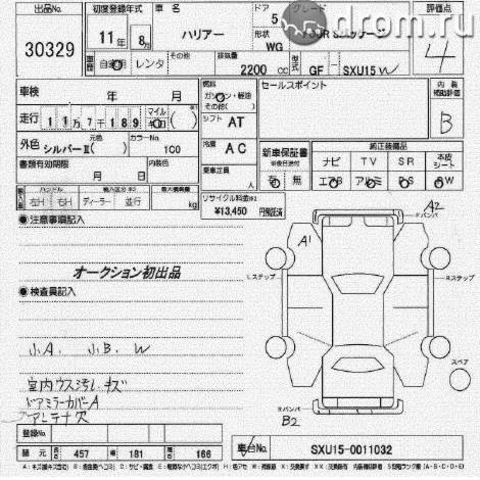 出品No. 初度登録年式 車名 ドア グレード 評価点
30329 11年 8月 ハリアー 5 drom.ru 4
形状 WG
車歴 自家用 レンタ その他 排気量 2200 cc 型式 GF - SXU15W
車検 年 月 燃料 ガソリン・軽油 その他( ) セールスポイント 内装 補助評価 B
走行 11万7千189 マイル km ( ) シフト AT
外色 元色 シルバーⅡ( ) カラーNo. 1C0 冷房 AC 新車保証書 純正装備品
ナビ TV SR 本皮シート
書類有効期限 月 日 内装色 乗車定員 人 有 無 エアB アルミ PS PW
ハンドル 左H 右H ディーラー 並行 最大積載量 kg リサイクル料金 ¥13,450 円預託済
●注意事項記入
A2
Fバンパ
A1
Lステップ Rステップ
オークション初出品
●検査員記入
小A. 小B. W
スペア
室内ウス汚レ.キズ
ドアミラーカバーA
アンテナ欠
Rバンパ
B2
登録No.
諸元 長さ 457 車幅 181 高さ 166 車台No. SXU15-0011032